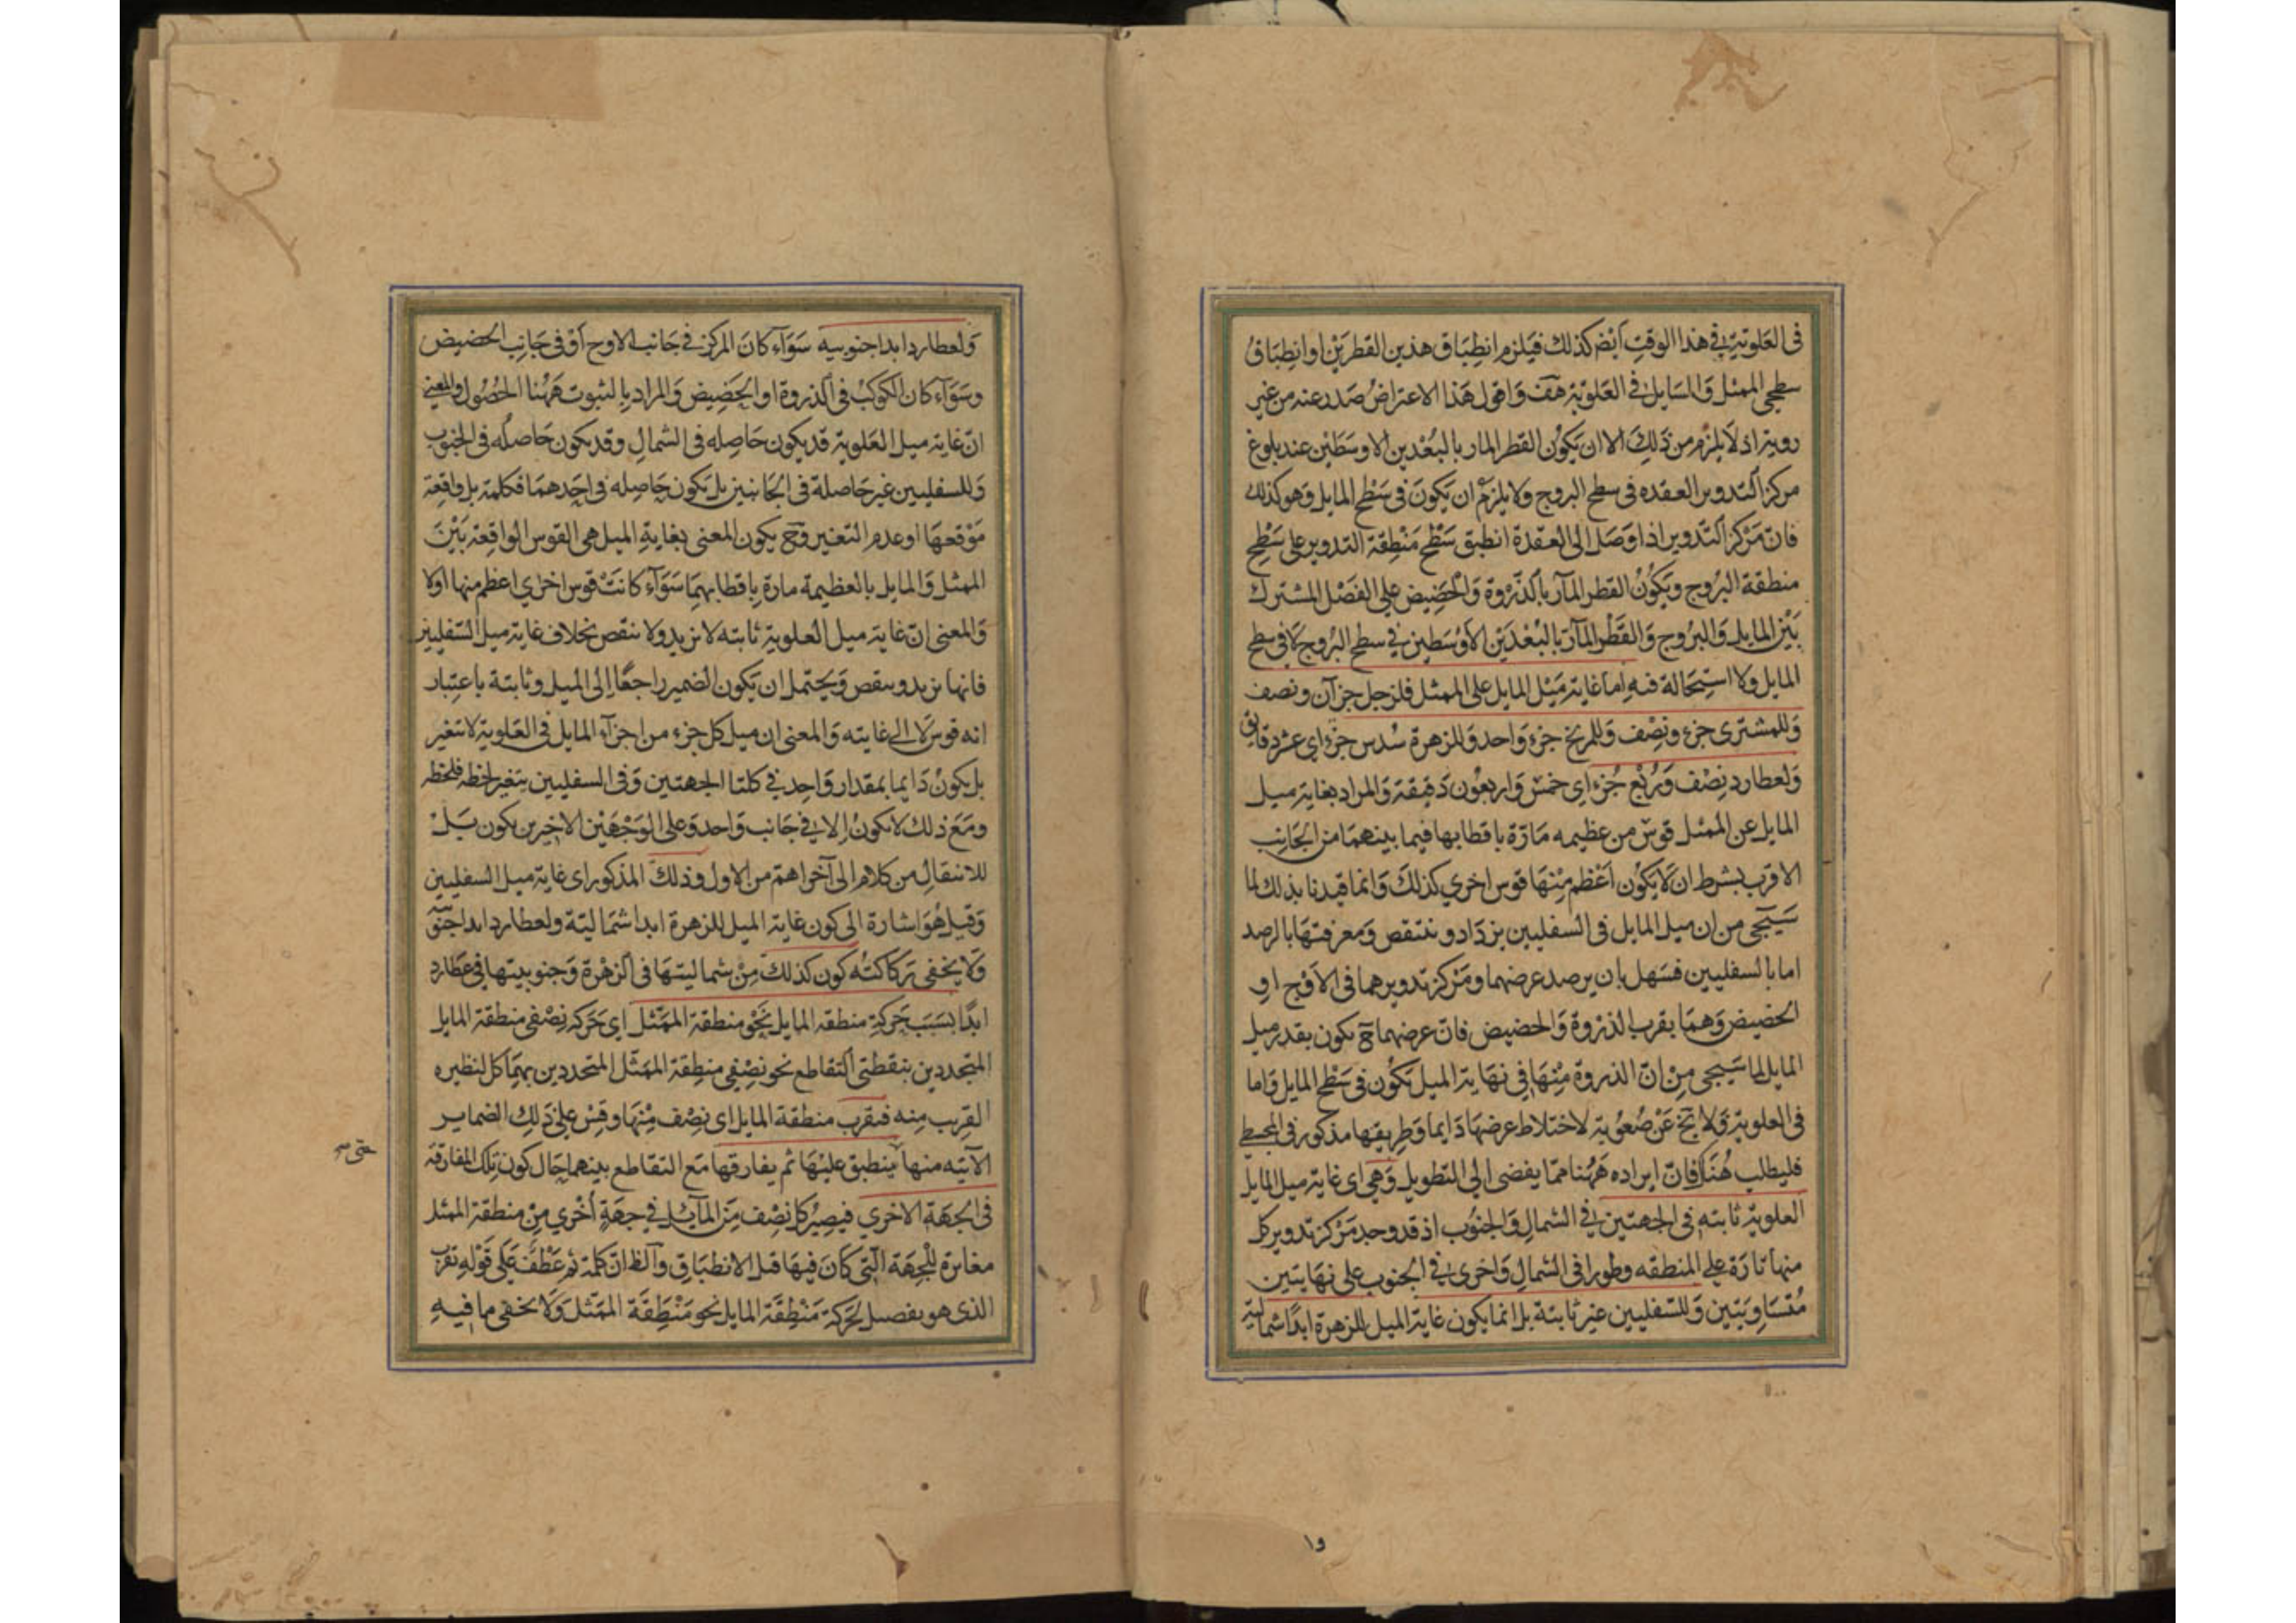 فى العلوية فى هذا الوقت ايض كذلك فيلزم انطباق هذين القطرين او انطباق
سطحى الممثل والمايل فى العلوية هف واقول هذا الاعتراض صدر عنه من غير
روية اذ لا يلزم من ذلك الا ان يكون القطر المار بالبعدين الاوسطين عند بلوغ
مركز التدوير العقده فى سطح البروج ولا يلزم ان يكون فى سطح المايل وهو كذلك
فان مركز التدوير اذا وصل الى العقدة انطبق سطح منطقة التدوير على سطح
منطقة البروج ويكون القطر المار بالذروة والحضيض على الفصل المشترك
بين المايل والبروج والقطر المار بالبعدين الاوسطين فى سطح البروج لا فى سطح
المايل ولا استحالة فيه اما غاية ميل المايل على الممثل فلزحل جزآن ونصف
وللمشترى جزء ونصف وللمريخ جزء واحد وللزهرة سدس جزء اى عشر دقايق
ولعطارد نصف وربع جزء اى خمس واربعون دقيقة والمراد بغاية ميل
المايل عن الممثل قوس من عظيمه مارة باقطابها فيما بينهما من الجانب
الاقرب بشرط ان لا يكون اعظم منها قوس اخرى كذلك وانما قيدنا بذلك لما
سيجى من ان ميل المايل فى السفليين يزداد وينتقص ومعرفتها بالرصد
اما بالسفليين فسهل بان يرصد عرضهما ومركز تدويرهما فى الاوج او
الحضيض وهما بقرب الذروة والحضيض فان عرضهما ح يكون بقدر ميل
المايل لما سيجى من ان الذروة منها فى نهاية الميل يكون فى سطح المايل واما
فى العلوية فلا يخ عن صعوبة لاختلاط عرضها دايما وطريقها مذكور فى المجسطى
فليطلب هناك فان ايراده ههنا مما يفضى الى التطويل وهى اى غاية ميل المايل
العلوية ثابته فى الجهتين فى الشمال والجنوب اذ قد وجد مركز تدوير كل
منها تارة على المنطقه وطورا فى الشمال واخرى فى الجنوب على نهايتين
متساويتين وللسفليين غير ثابتة بل انما يكون غاية الميل للزهرة ابدا شمالية
ولعطارد ابدا جنوبيه سوآء كان المركز فى جانب الاوج او فى جانب الحضيض
وسوآء كان الكوكب فى الذروة او الحضيض والمراد بالثبوت ههنا الحصول والمعنى
ان غاية ميل العلوية قد يكون حاصله فى الشمال وقد يكون حاصله فى الجنوب
وللسفليين غير حاصلة فى الجانبين بل يكون حاصله فى احدهما فكلمة بل واقعة
موقعها او عدم التغير وح يكون المعنى بغاية الميل هى القوس الواقعة بين
الممثل والمايل بالعظيمة مارة باقطابهما سوآء كانت قوس اخرى اعظم منها اولا
والمعنى ان غاية ميل العلوية ثابته لا تزيد ولا تنقص بخلاف غاية ميل السفليين
فانها تزيد وينقص ويحتمل ان يكون الضمير راجعا الى الميل وثابتة باعتبار
انه قوس لا الى غايته والمعنى ان ميل كل جزء من اجزآء المايل فى العلوية لا تتغير
بل يكون دايما بمقدار واحد فى كلتا الجهتين وفى السفليين يتغير لحظه فلحظه
ومع ذلك لا يكون الا فى جانب واحد وعلى الوجهين الاخيرين يكون بل
للانتقال من كلام الى آخر اهم من الاول وذلك المذكور اى غاية ميل السفليين
وقيل هو اشارة الى كون غاية الميل للزهرة ابدا شمالية ولعطارد ابدا جنوبية
ولا يخفى ركاكته كون كذلك من شماليتها فى الزهرة وجنوبيتها فى عطارد
ابدا بسبب حركة منطقه المايل نحو منطقة الممثل اى حركة نصفى منطقة المايل
المتحددين بنقطتى التقاطع نحو نصفى منطقة الممثل المتحددين بهما كل لنظيره
القريب منه فيقرب منطقة المايل اى نصف منها وقس على ذلك الضماير
الآتيه منها ينطبق عليها ثم يفارقها مع التقاطع بينهما حال كون تلك المفارقة
حتى صح
فى الجهة الاخرى فيصير كل نصف من المايل فى جهة اخرى من منطقة الممثل
مغايرة للجهة التى كان فيها قبل الانطباق والظ ان كلمة ثم عطف على قوله تقرب
الذى هو يفصل لحركة منطقة المايل نحو منطقة الممثل ولا يخفى ما فيه
١٥